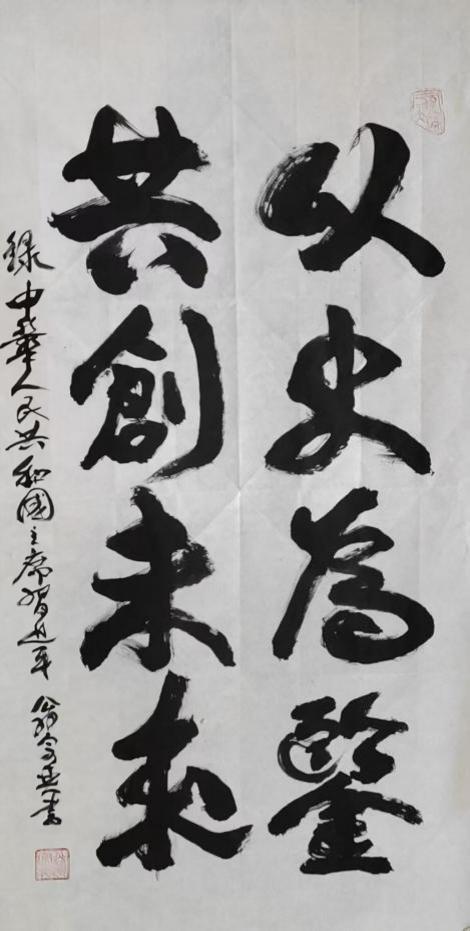 以史為鑒
共創未來
錄中華人民共和國主席習近平 翁 書